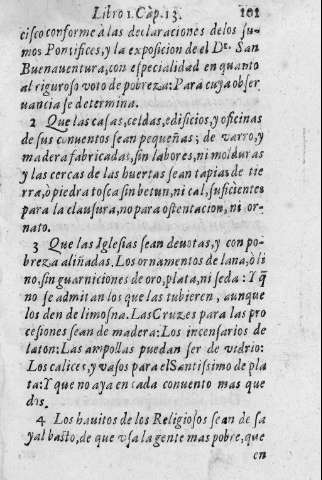 Libro 1. Cap. 13. 101
cisco conforme à las declaraciones de los su-
mos Pontifices, y la exposicion de el Dr. San
Buenaventura, con especialidad en quanto
al riguroso voto de pobreza: Para cuya obser
uancia se determina.
2 Que las casas, celdas, edificios, y oficinas
de sus conuentos sean pequeñas; de varro, y
madera fabricadas, sin labores, ni molduras
y las cercas de las huertas sean tapias de tie
rra, ò piedra tosca sin betun, ni cal, suficientes
para la clausura, no para ostentacion, ni or-
nato.
3 Que las Iglesias sean deuotas, y con po-
breza aliñadas. Los ornamentos de lana, ò li
no, sin guarniciones de oro, plata, ni seda: Y q̃
no se admitan los que las tubieren, aunque
los den de limosna. Las Cruzes para las pro
cesiones sean de madera: Los incensarios de
laton: Las ampollas puedan ser de vidrio:
Los calices, y vasos para el Santissimo de pla
ta: Y que no aya en cada conuento mas que
dos.
4 Los hauitos de los Religiosos sean de sa
yal basto, de que vsa la gente mas pobre, que
en